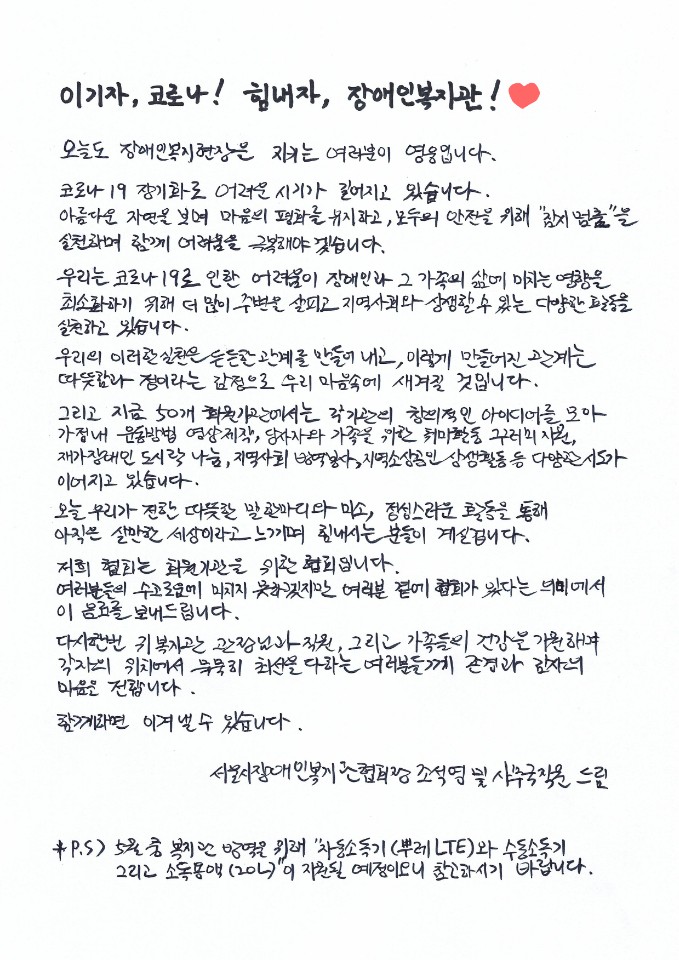 이기자, 코로나! 힘내자, 장애인복지관!
오늘도 장애인복지현장을 지키는 여러분이 영웅입니다.
코로나 19 장기화로 어려운 시기가 길어지고 있습니다.
아름다운 자연을 보며 마음의 평화를 유지하고, 모두의 안전을 위해 "잠시 멈춤"을
실천하며 함께 어려움을 극복해야 겠습니다.
우리는 코로나 19로 인한 어려움이 장애인과 그 가족의 삶에 미치는 영향을
최소화하기 위해 더 많이 주변을 살피고 지역사회와 상생할 수 있는 다양한 활동을
실천하고 있습니다.
우리의 이러한 실천은 든든한 관계를 만들어 내고, 이렇게 만들어진 관계는
따뜻함과 정이라는 감정으로 우리 마음속에 새겨질 것입니다.
그리고 지금 50개 회원기관에서는 각 기관의 창의적인 아이디어를 모아
가정내 운동방법 영상제작, 당사자와 가족을 위한 취미활동 꾸러미 지원,
재가장애인 도시락 나눔, 지역사회 방역봉사, 지역소상공인 상생활동 등 다양한 시도가
이어지고 있습니다.
오늘 우리가 전한 따뜻한 말 한마디와 미소, 정성스러운 활동을 통해
아직은 살만한 세상이라고 느끼며 힘내시는 분들이 계실겁니다.
저희 협회는 회원기관을 위한 협회입니다.
여러분들의 수고로움에 미치지 못하겠지만 여러분 곁에 협회가 있다는 의미에서
이 음료를 보내드립니다.
다시한번 귀 복지관 관장님과 직원, 그리고 가족들의 건강을 기원하며
각자의 위치에서 묵묵히 최선을 다하는 여러분들께 존경과 감사의
마음을 전합니다.
함께라면 이겨 낼 수 있습니다.
서울시장애인복지관협회장 조석영 및 사무국직원 드림
* P.S) 5월 중 복지관 방역을 위해 "자동소독기(뿌레 LTE)와 수동소독기
그리고 소독용액(20L)"이 지원될 예정이오니 참고하시기 바랍니다.